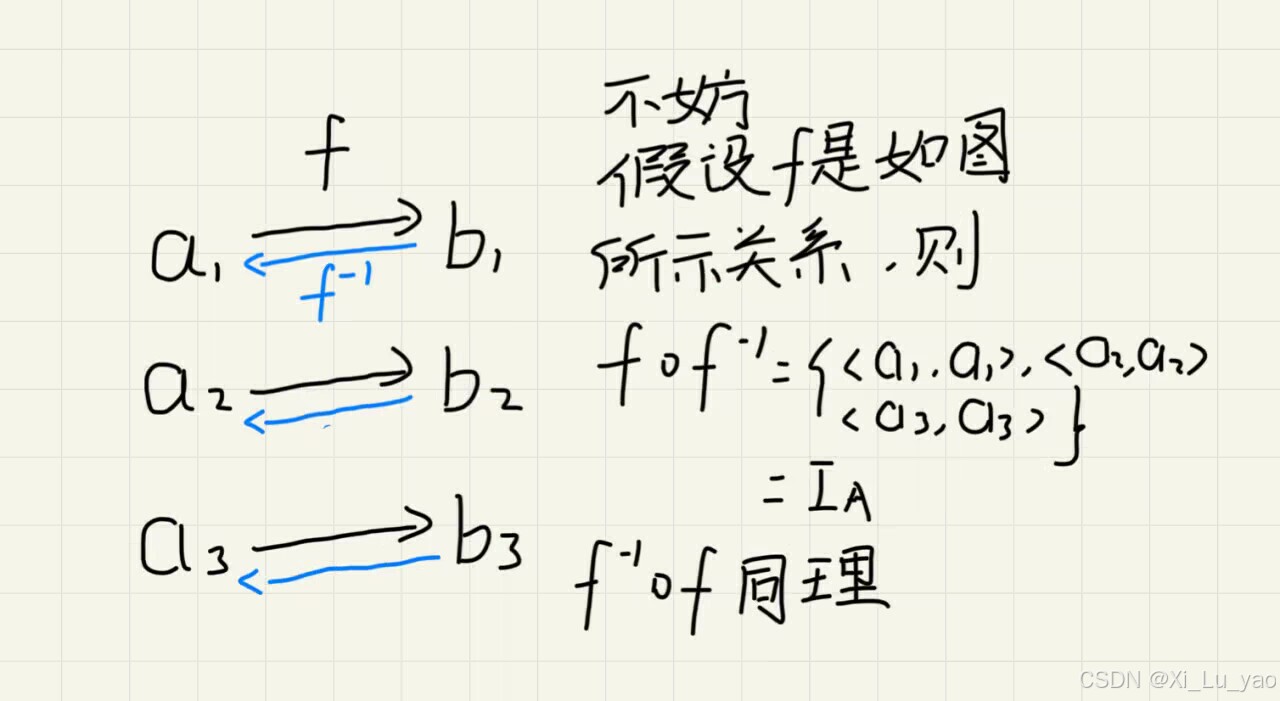 f
a₁ b₁
f⁻¹
a₂ b₂
a₃ b₃
不妨
假设f是如图
所示关系.则
f∘f⁻¹={<a₁.a₁>,<a₂,a₂>
<a₃,a₃>}
=I_A
f⁻¹∘f 同理
CSDN @Xi_Lu_yao